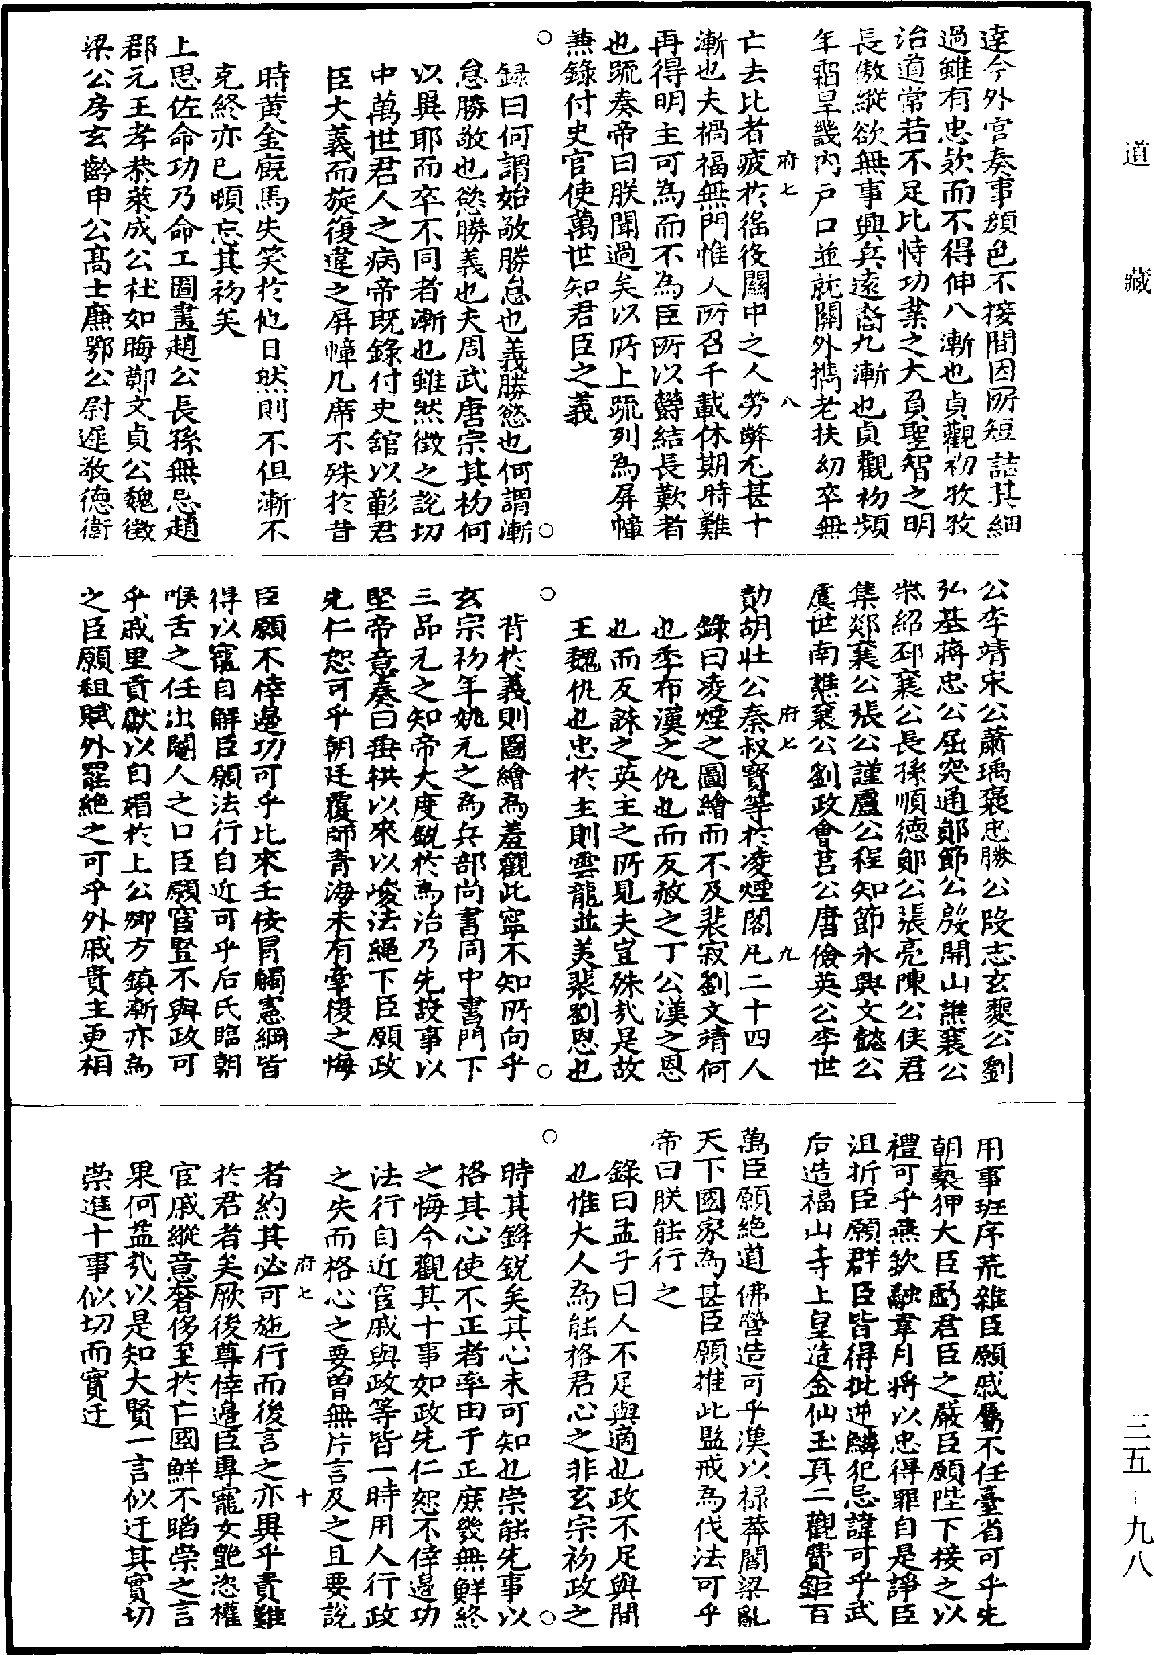 達今外官奏事顏色不接間因所短詰其細
過雖有忠欵而不得伸八漸也貞觀初孜孜
治道常若不足比恃功業之大負聖智之明
長傲縱欲無事興兵遠裔九漸也貞觀初頻
年霜旱畿內戶口並就關外攜老扶幼卒無
府七 八
亡去比者疲於徭役關中之人勞弊尤甚十
漸也夫禍福無門惟人所召千載休期時難
再得明主可為而不為臣所以鬱結長歎者
也疏奏帝曰朕聞過矣以所上疏列為屏幛
兼錄付史官使萬世知君臣之義
○ ○
錄曰何謂始敬勝怠也義勝慾也何謂漸
怠勝敬也慾勝義也夫周武唐宗其初何
以異耶而卒不同者漸也雖然徵之說切
中萬世君人之病帝既錄付史舘以彰君
臣大義而旋復違之屏幛几席不殊於昔
時黃金廐馬失笑於他日然則不但漸不
克終亦已頓忘其初矣
上思佐命功乃命工圖畫趙公長孫無忌趙
郡元王孝恭萊成公杜如晦鄭文貞公魏徵
梁公房玄齡申公高士廉鄂公尉遲敬德衛
公李靖宋公蕭瑀褒忠勝公段志玄夔公劉
弘基蔣忠公屈突通鄖節公殷開山譙襄公
柴紹邳襄公長孫順德鄖公張亮陳公侯君
集郯襄公張公謹盧公程知節永興文懿公
虞世南譙襄公劉政會莒公唐儉英公李世
府七 九
勣胡壯公秦叔寶等於凌煙閣凡二十四人
錄曰凌煙之圖繪而不及裴寂劉文靖何
也季布漢之仇也而反赦之丁公漢之恩
也而反誅之英主之所見夫豈殊哉是故
王魏仇也忠於主則雲龍並美裴劉恩也
○ ○
背於義則圖繪為羞觀此寧不知所向乎
玄宗初年姚元之為兵部尚書同中書門下
三品元之知帝大度銳於為治乃先設事以
堅帝意奏曰垂拱以來以峻法繩下臣願政
先仁恕可乎朝廷覆師青海未有牽復之悔
臣願不倖邊功可乎比來壬佞冒觸憲綱皆
得以寵自解臣願法行自近可乎后氏臨朝
喉舌之任出閹人之口臣願宦豎不與政可
乎戚里貢獻以自媚於上公卿方鎮漸亦為
之臣願租賦外罷絕之可乎外戚貴主更相
用事班序荒雜臣願戚屬不任臺省可乎先
朝褻狎大臣虧君臣之嚴臣願陛下接之以
禮可乎燕欽融韋月將以忠得罪自是諍臣
沮折臣願群臣皆得批逆鱗犯忌諱可乎武
后造福山寺上皇造金仙玉真二觀費鉅百
萬臣願絕道佛營造可乎漢以祿莽閻梁亂
天下國家為甚臣願推此監戒為伐法可乎
帝曰朕能行之
錄曰孟子曰人不足與適也政不足與間
也惟大人為能格君心之非玄宗初政之
○ ○
時其鋒銳矣其心未可知也崇能先事以
格其心使不正者率由于正庶幾無鮮終
之悔今觀其十事如政先仁恕不倖邊功
法行自近宦戚與政等皆一時用人行政
之失而格心之要曾無片言及之且要說
府七 十
者約其必可施行而後言之亦異乎責難
於君者矣厥後尊倖邊臣專寵女艷恣權
宦戚縱意奢侈至於亡國鮮不蹈崇之言
果何益哉以是知大賢一言似迂其實切
崇進十事似切而實迂
道藏
三五-九八